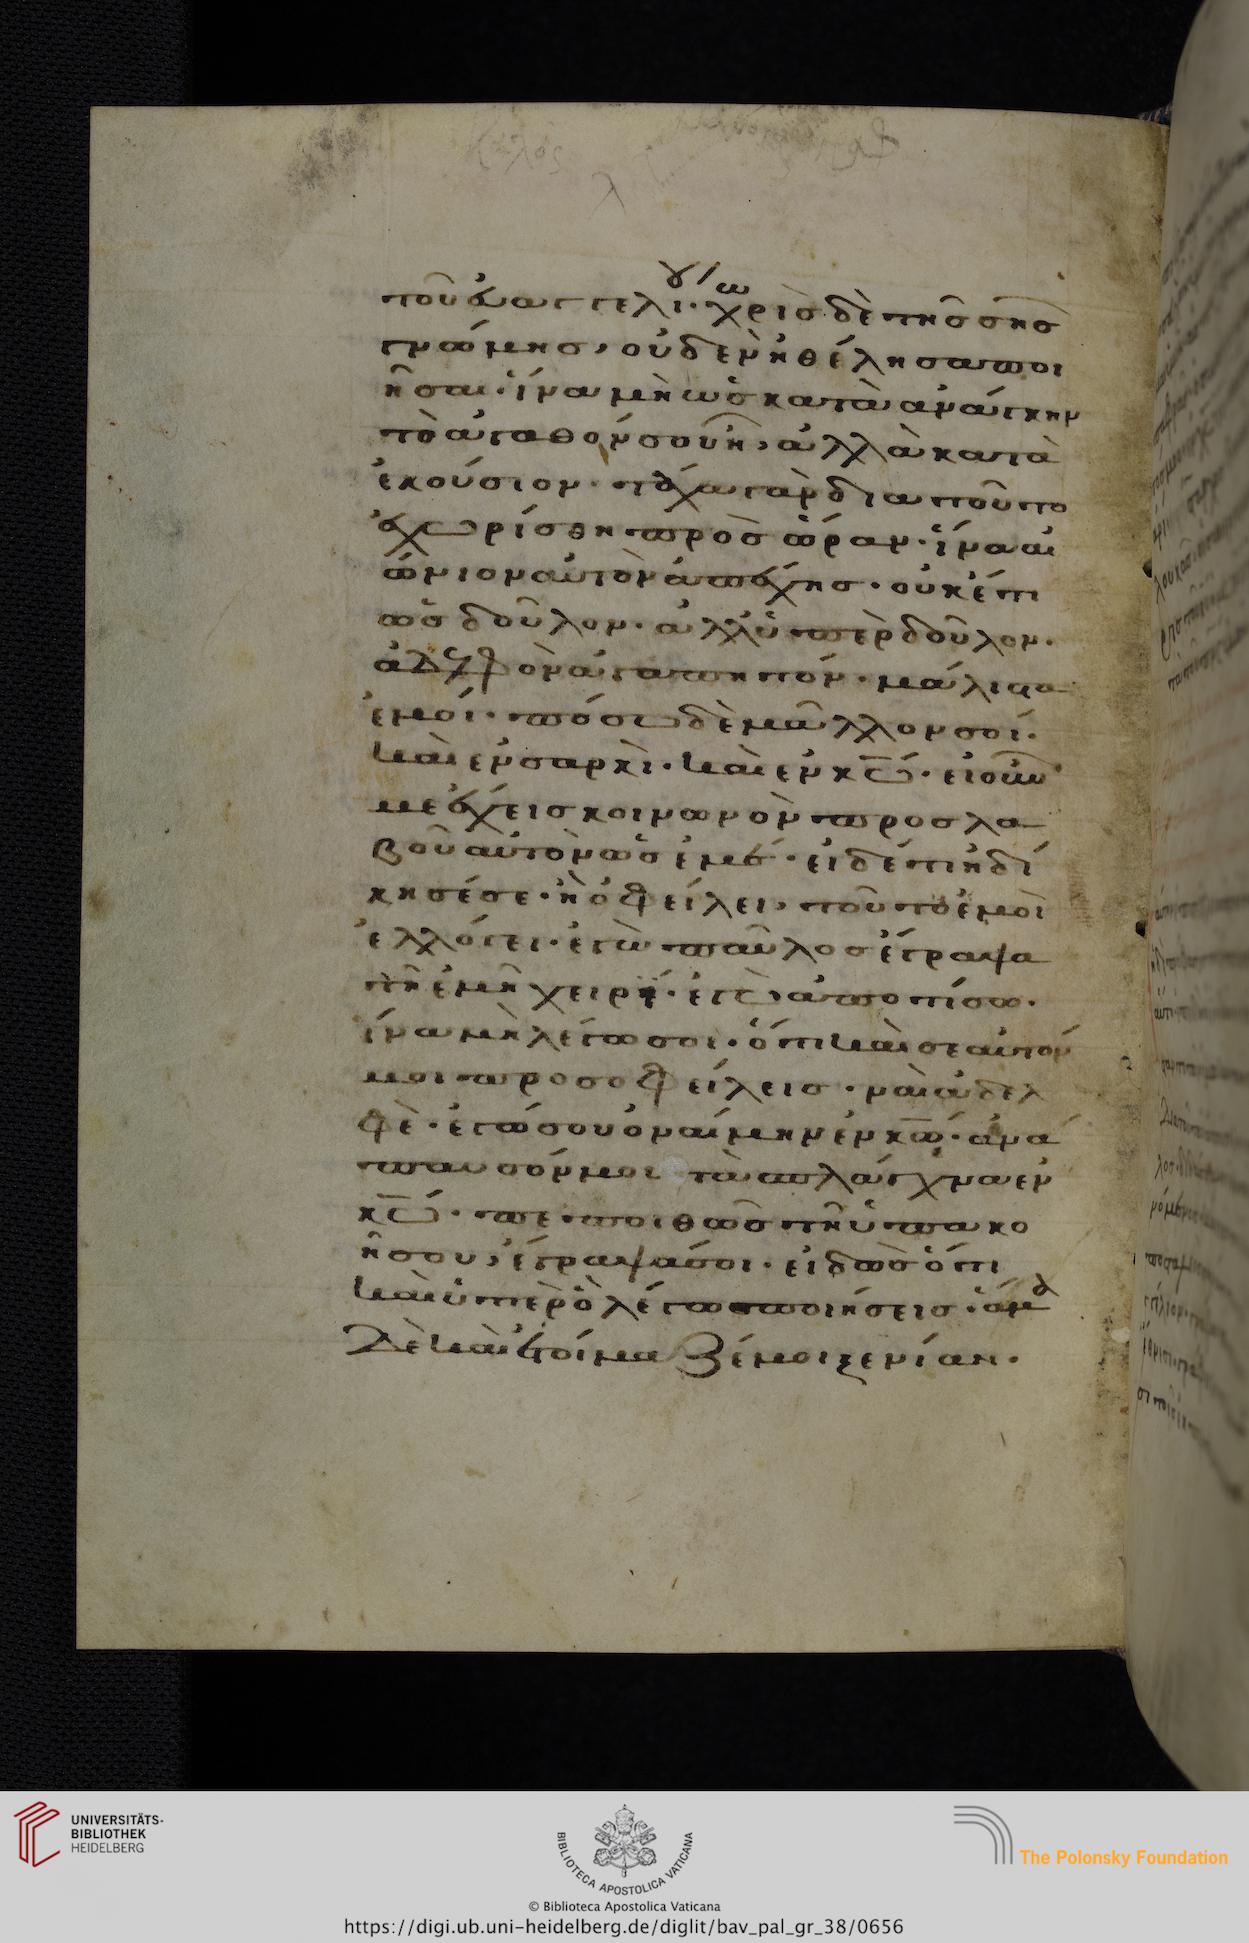 τοῦ εὐαγγελί(ου)· χωρὶς δὲ τῆς σῆς
γνώμης, οὐδὲν ἠθέλησα ποι
ῆσαι· ἵνα μὴ ὡς κατὰ ἀνάγκην
τὸ ἀγαθόν σου ᾖ, ἀλλὰ κατὰ
ἑκούσιον· τάχα γὰρ δια τοῦτο
ἐχωρίσθη πρὸς ὥραν· ἵνα αἰ
ώνιον αὐτὸν ἀπέχῃς· οὐκέτι
ὡς δοῦλον· ἀλλ' ὑπὲρ δοῦλον·
ἀδελφὸν ἀγαπητόν· μάλιστα
ἐμοί· πόσω δὲ μᾶλλον σοί·
καὶ ἐν σαρκὶ· καὶ ἐν κω· εἰ οὖν
με ἔχεις κοινωνὸν προσλα
βοῦ αὐτὸν ὡς ἐμέ· εἰ δέ τι ἠδί
κησέ σε· ἢ ὀφείλει, τοῦτο ἐμοὶ
ἐλλόγει· ἐγὼ παῦλος ἔγραψα
τῇ ἐμῇ χειρί· ἐγὼ ἀποτίσω·
ἵνα μὴ λέγω σοι· ὅτι καὶ σεαυτόν
μοι προσοφείλεις· ναὶ ἀδελ
φὲ· ἐγώ σου ὀναίμην ἐν κω· ἀνά
παυσόν μοι τὰ σπλάγχνα ἐν
κω· πεποιθὼς τῇ ὑπακο
ῆ σου, ἔγραψά σοι· εἰδὼς ὅτι
καὶ ὑπὲρ ὃ λέγω ποιήσεις· ἅμα
δὲ καὶ ἑτοίμαζέ μοι ξενίαν·
UNIVERSITÄTS-
BIBLIOTHEK
HEIDELBERG
BIBLIOTECA APOSTOLICA VATICANA
The Polonsky Foundation
© Biblioteca Apostolica Vaticana
https://digi.ub.uni-heidelberg.de/diglit/bav_pal_gr_38/0656